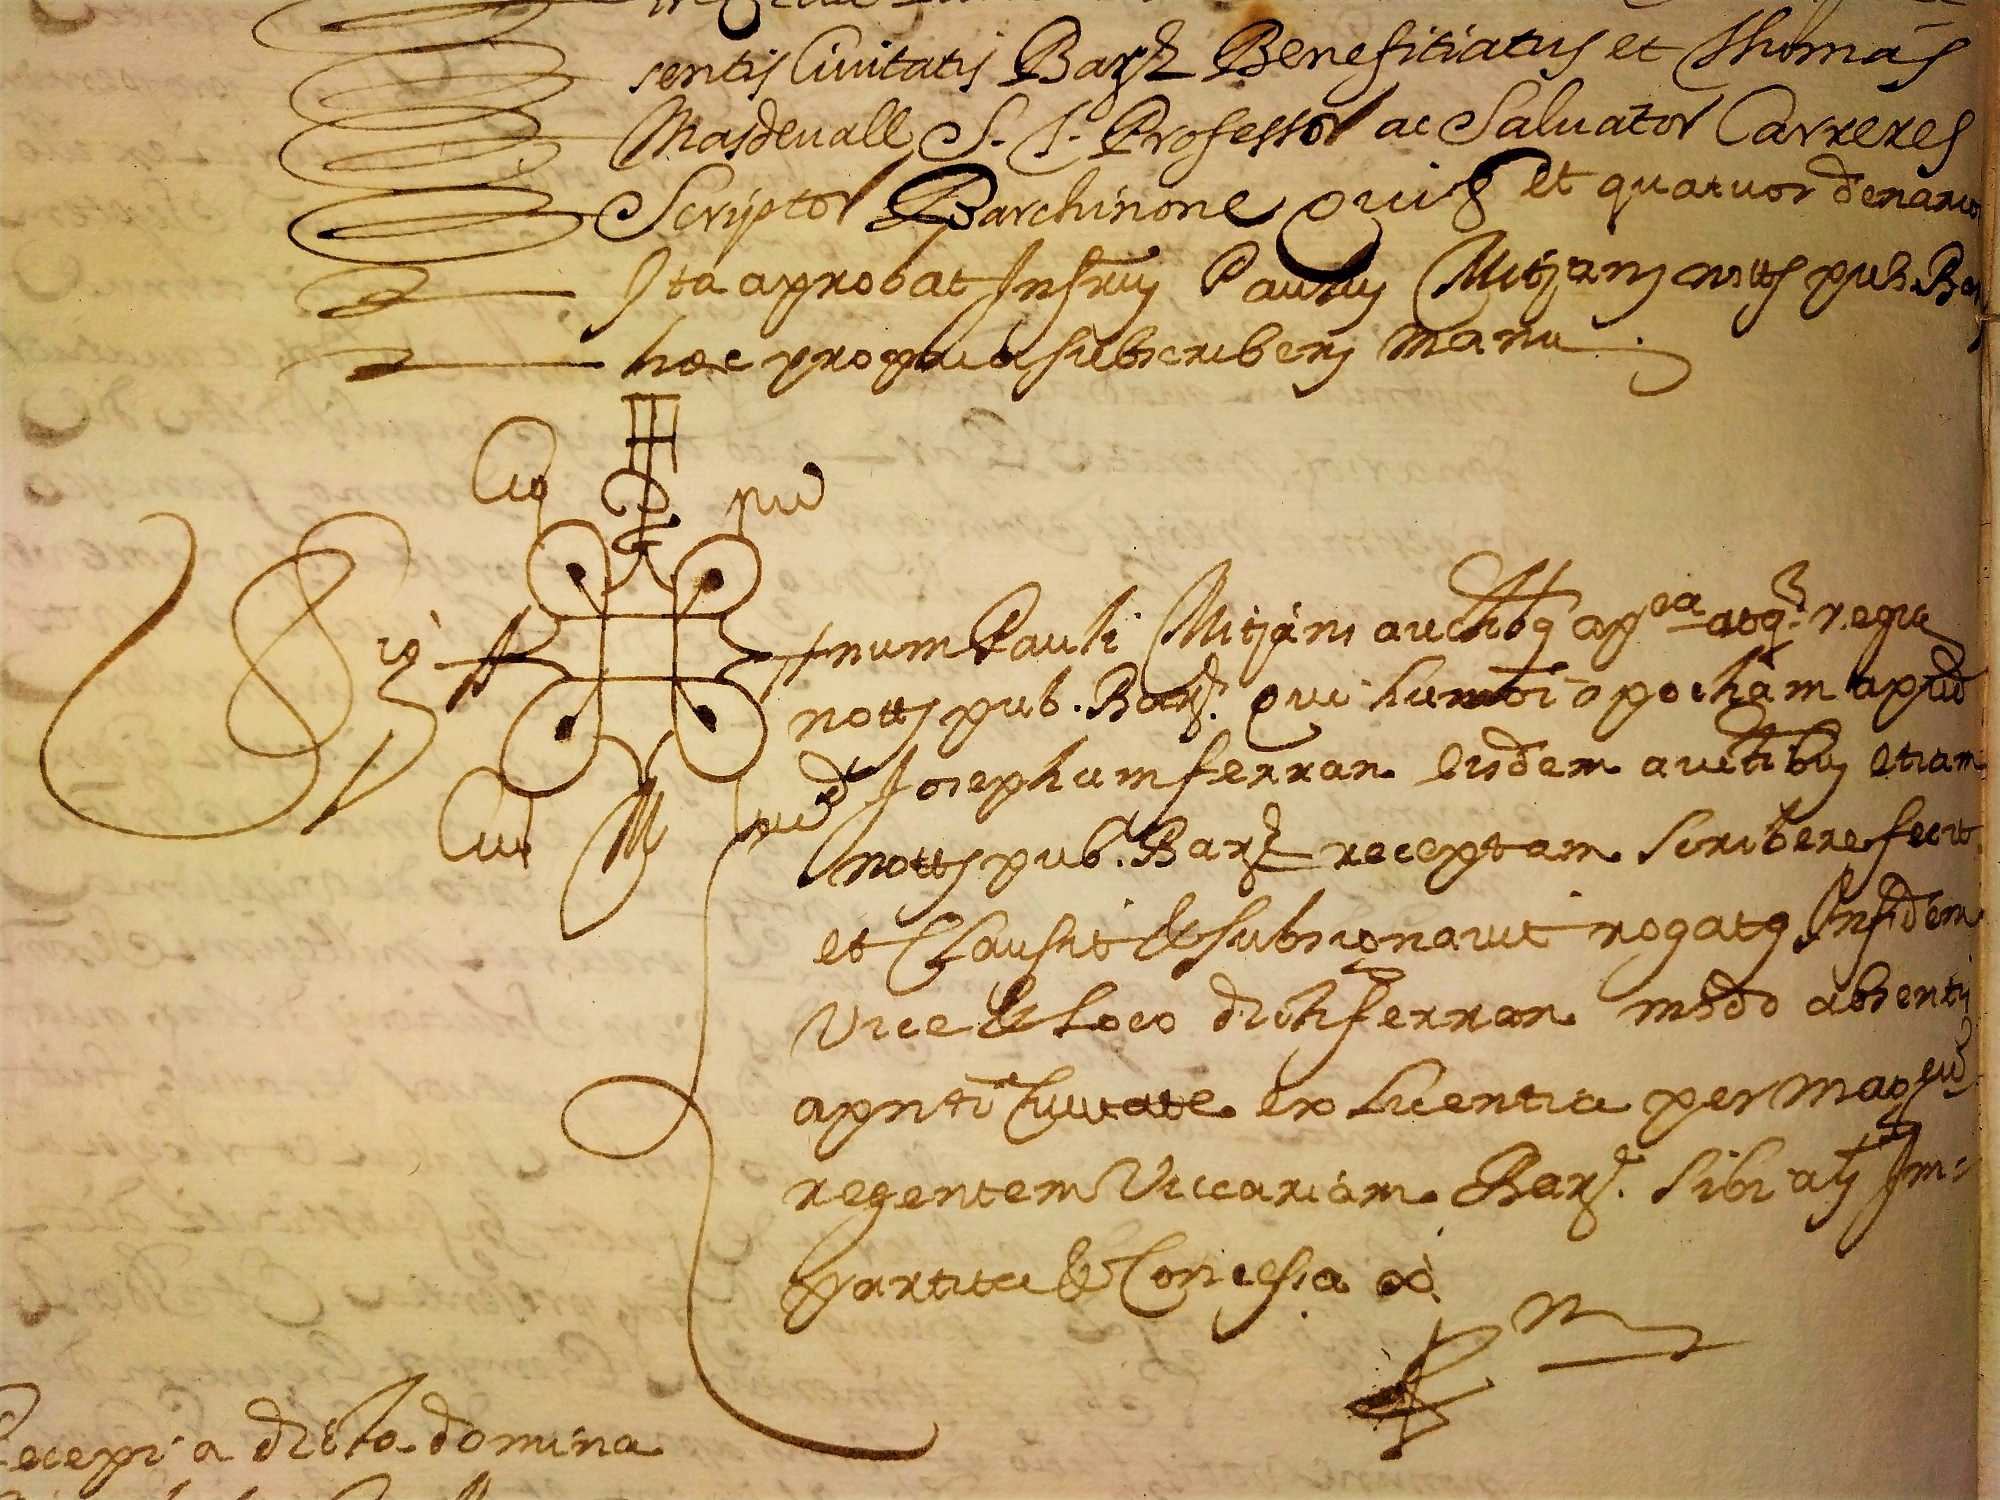 sentis Civitatis Barz Benefitiatus et Thomas
Masdevall S. T. Professor ac Salvator Carreres
Scriptor Barchinone et quatuor denarios
Ita aprobat Paulus Mitjans notts pub. Bar
hec propria subscribens manu
Sig num Pauli Mitjans aucthbq apca atq regia
notts pub. Barz. qui humoi apocham apud
d Josephum ferran eisdem aucttibus etiam
notts pub. Barz receptam scribere fecit
et Clausit & subsignavit rogatq Infidem
Vice & Loco dicti ferran modo absentis
apnti Civitate ex licentia per Magcum
regentem Viccariam Barz. sibi Im-
partita & Concessa
Recepi a dicta domina